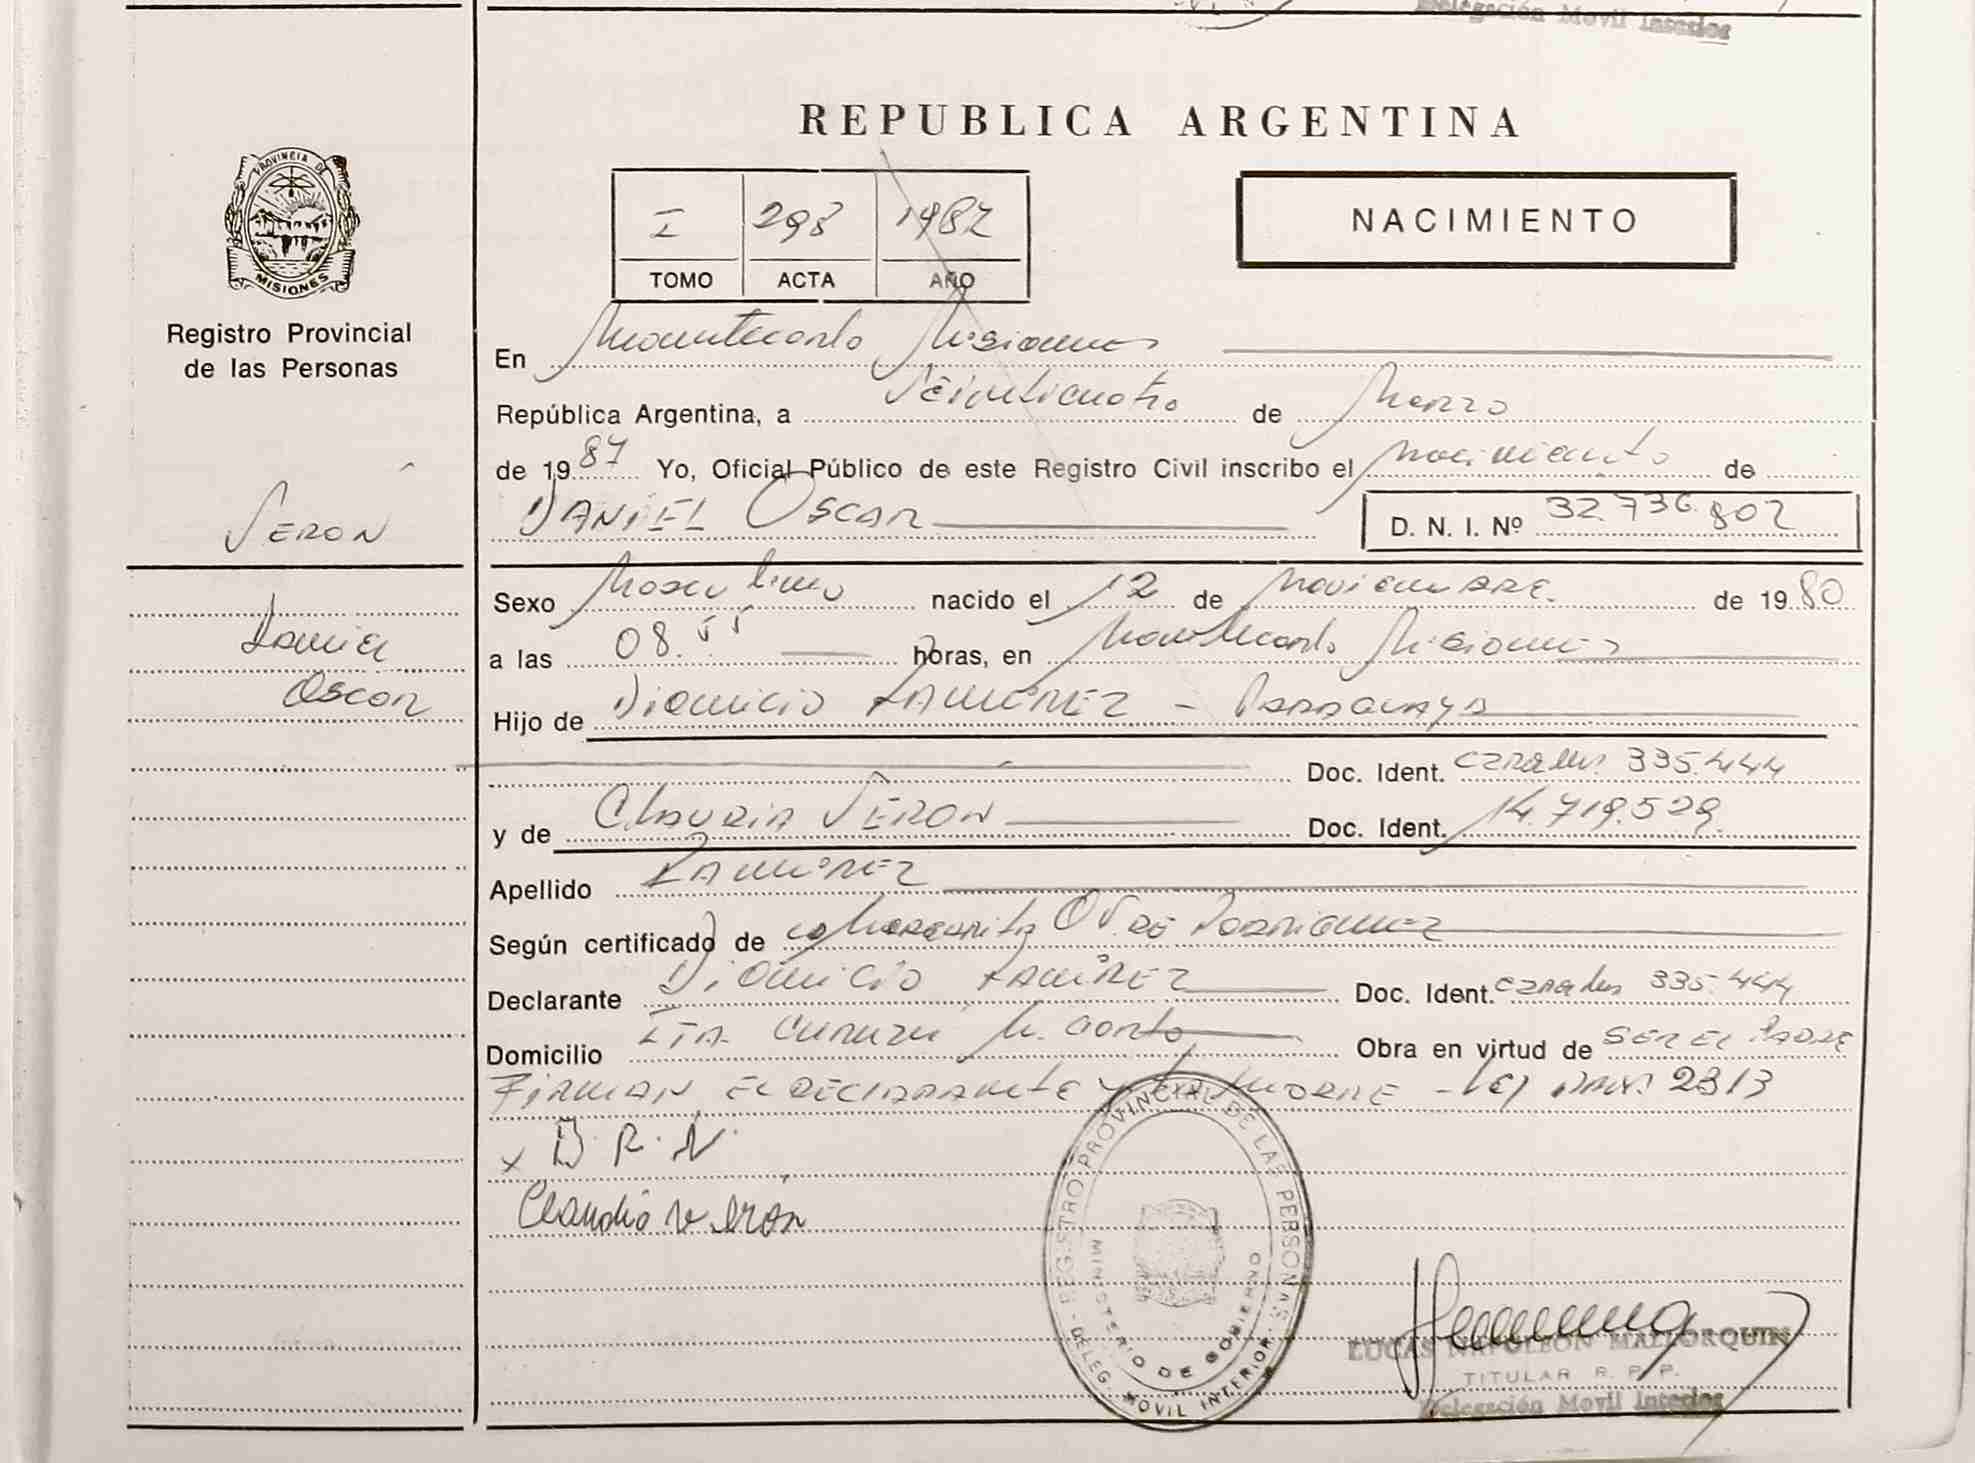 Delegación Movil Interior
REPUBLICA ARGENTINA
PROVINCIA DE
MISIONES
Registro Provincial
de las Personas
I 298 1987
TOMO ACTA AÑO
NACIMIENTO
En Montecarlo Misiones
República Argentina, a Veinticuatro de Marzo
de 1987 Yo, Oficial Público de este Registro Civil inscribo el nacimiento de
DANIEL OSCAR
D. N. I. Nº 32.736.802
VERON
Daniel
Oscar
Sexo Masculino nacido el 12 de NoviemBRE de 1980
a las 08.55 horas, en Montecarlo Misiones
Hijo de Dionicio RAMIREZ - PARAGUAYA
Doc. Ident. 335.444
y de CLAUDIA VERON Doc. Ident. 14.719.529
Apellido RAMIREZ
Según certificado de Margarita DE
Declarante Dionicio RAMIREZ Doc. Ident. 335.444
Domicilio Curuzú M. Carlo Obra en virtud de SER EL PADRE
FIRMAN EL DECLARANTE Y LA MADRE - Ley 2313
x D. R. N.
Claudia veron
REGISTRO PROVINCIAL DE LAS PERSONAS
MINISTERIO DE GOBIERNO
DELEG. MOVIL INTERIOR
LUCAS NAPOLEON MALLORQUIN
TITULAR R. P. P.
Delegación Movil Interior